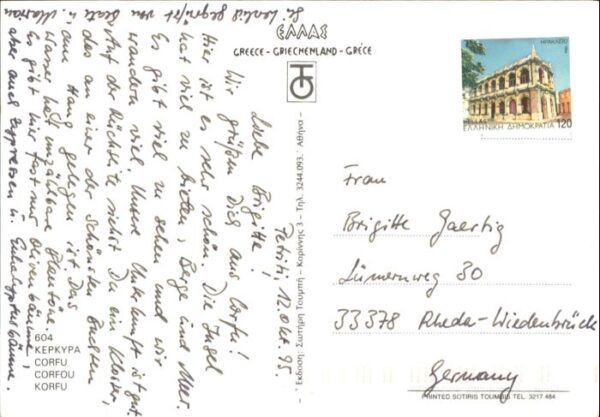 Petriti, 12. Okt. 95
Liebe Brigitte!
Wir grüßen Dich aus Corfu!
Hier ist es sehr schön. Die Insel
hat viel zu bieten, Berge und Meer.
Es gibt viel zu sehen und wir
wandern viel. Unsere Unterkunft ist gut.
Auf der Rückseite siehst Du ein Kloster,
das an einer der schönsten Buchten
am Hang gelegen ist. Das
Wasser hat unzählbare Blautöne.
Es gibt hier fast nur Olivenbäume,
aber auch Zypressen u. Eukalyptusbäume.
Sei herzlich gegrüßt von
Beate u.
ΕΛΛΑΣ
GREECE - GRIECHENLAND - GRÈCE
ΗΡΑΚΛΕΙΟ
HELLAS
ΕΛΛΗΝΙΚΗ ΔΗΜΟΚΡΑΤΙΑ 120
– Εκδοση: Σωτήρη Τουμπή – Κορίννης 3 – Τηλ. 3244.093. Αθήνα –
Frau
Brigitte Gaertig
Lümernweg 30
33378 Rheda-Wiedenbrück
Germany
604
ΚΕΡΚΥΡΑ
CORFU
CORFOU
KORFU
PRINTED SOTIRIS TOUMBIS TEL. 3217 484